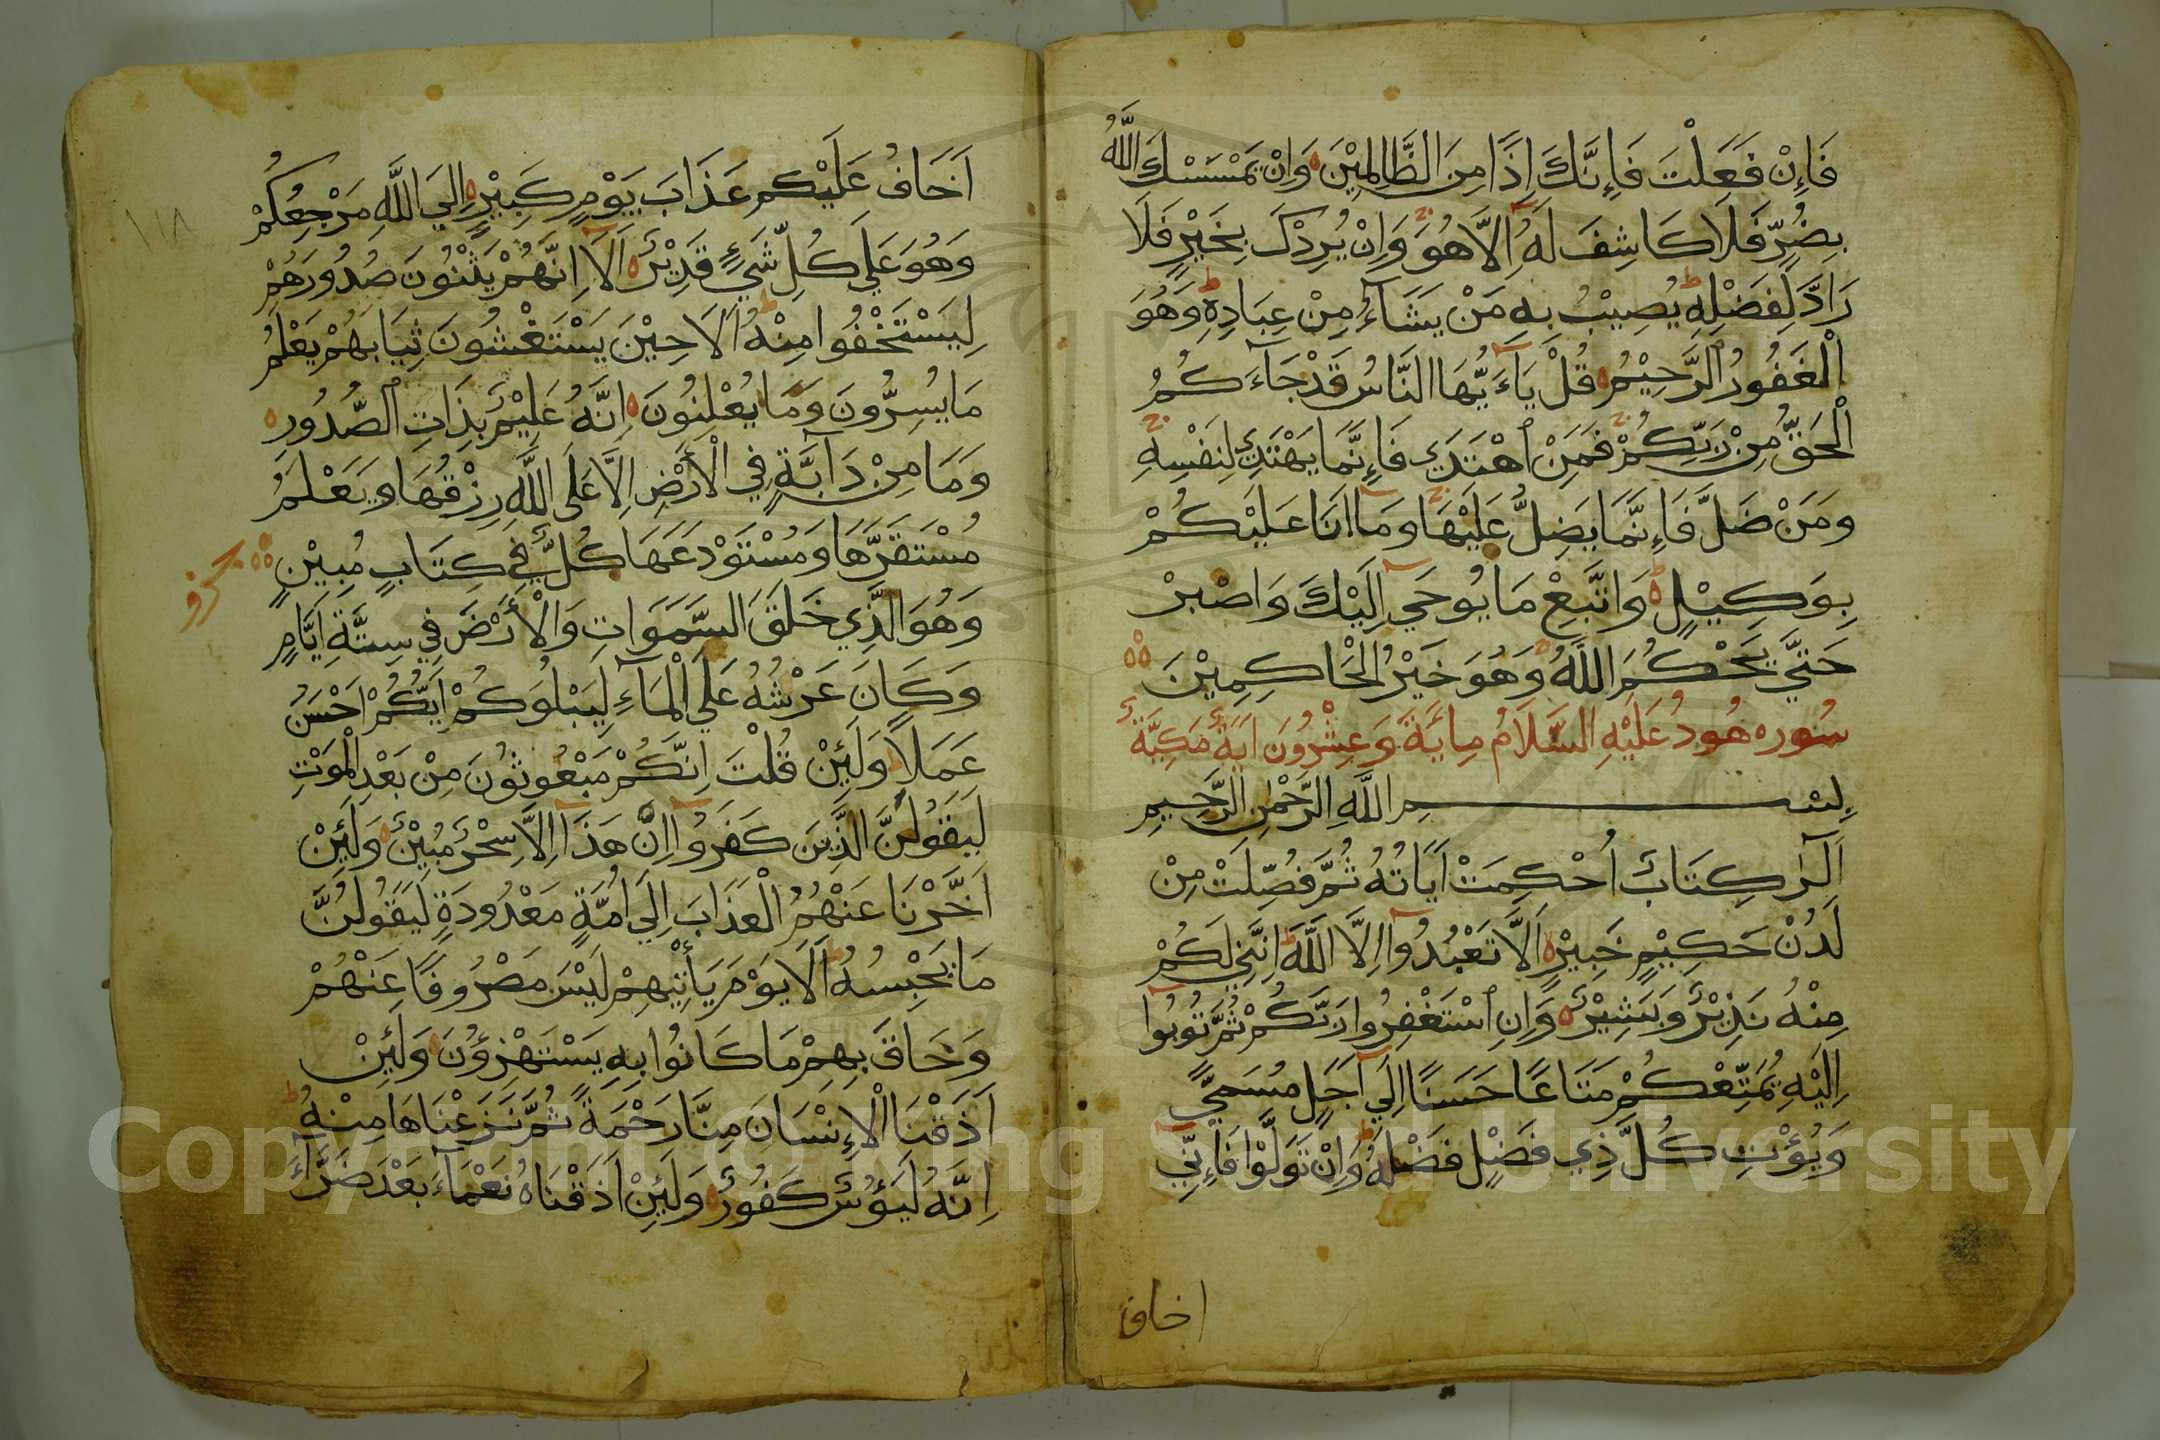 فَإِنْ فَعَلْتَ فَإِنَّكَ إِذًا مِنَ الظَّالِمِيْنَ ۝ وَاِنْ يَمْسَسْكَ اللَّهُ
بِضُرٍّ فَلَا كَاشِفَ لَهُ اِلَّا هُوَ وَاِنْ يُرِدْكَ بِخَيْرٍ فَلَا
رَادَّ لِفَضْلِهِ يُصِيْبُ بِهِ مَنْ يَشَآءُ مِنْ عِبَادِهِ وَهُوَ
الْغَفُورُ الرَّحِيْمُ ۝ قُلْ يَاَءَيُّهَا النَّاسُ قَدْ جَآءَكُمُ
الْحَقُّ مِنْ رَبِّكُمْ فَمَنِ اهْتَدَي فَإِنَّمَا يَهْتَدِي لِنَفْسِهِ
وَمَنْ ضَلَّ فَإِنَّمَا يَضِلُّ عَلَيْهَا وَمَا اَنَا عَلَيْكُمْ
بِوَكِيْلٍ ۝ وَاتَّبِعْ مَا يُوحَي اِلَيْكَ وَاصْبِرْ
حَتَّي يَحْكُمَ اللَّهُ وَهُوَ خَيْرُ الْحَاكِمِيْنَ ۝
سُوره هُودُ عَلَيْهِ السَّلَامُ مِايَةٌ وَعِشْرُونَ اَيَةً مَكِيَّةٌ
بِسْمِ اللَّهِ الرَّحْمٰنِ الرَّحِيمِ
اَلٓرٰ كِتَابٌ اُحْكِمَتْ اَيَاتُهُ ثُمَّ فُصِّلَتْ مِنْ
لَدُنْ حَكِيْمٍ خَبِيْرٍ ۝ اَلَّا تَعْبُدُوآ اِلَّا اللَّهَ اِنَّنِي لَكُمْ
مِنْهُ نَذِيْرٌ وَبَشِيْرٌ ۝ وَاَنِ اسْتَغْفِرُوا رَبَّكُمْ ثُمَّ تُوبُوا
اِلَيْهِ يُمَتِّعْكُمْ مَتَاعًا حَسَنًا اِلَي اَجَلٍ مُسَمًّي
وَيُؤْتِ كُلَّ ذِي فَضْلٍ فَضْلَهُ وَاِنْ تَوَلَّوْا فَاِنِّي
اخاف
اَخَافُ عَلَيْكُم عَذَابَ يَوْمٍ كَبِيْرٍ ۝ اِلَي اللَّهِ مَرْجِعُكُمْ
وَهُوَ عَلَي كُلِّ شَيْءٍ قَدِيْرٌ ۝ اَلَا اِنَّهُمْ يَثْنُونَ صُدُورَهُمْ
لِيَسْتَخْفُوا مِنْهُ اَلَا حِيْنَ يَسْتَغْشُونَ ثِيَابَهُمْ يَعْلَمُ
مَا يُسِرُّونَ وَمَا يُعْلِنُونَ ۝ اِنَّهُ عَلِيْمٌ بِذَاتِ الصُّدُورِ ۝
وَمَا مِنْ دَآبَّةٍ فِي الْأَرْضِ اِلَّا عَلَي اللَّهِ رِزْقُهَا وَيَعْلَمُ
مُسْتَقَرَّهَا وَمُسْتَوْدَعَهَا كُلٌّ فِي كِتَابٍ مُبِيْنٍ ۝
وَهُوَ الَّذِي خَلَقَ السَّمَوَاتِ وَالْأَرْضَ فِي سِتَّةِ اَيَّامٍ
وَكَانَ عَرْشُهُ عَلَي الْمَآءِ لِيَبْلُوَكُمْ اَيُّكُمْ اَحْسَنُ
عَمَلًا وَلَئِنْ قُلْتَ اِنَّكُمْ مَبْعُوثُونَ مِنْ بَعْدِ الْمَوْتِ
لَيَقُولَنَّ الَّذِيْنَ كَفَرُوا اِنْ هَذَا اِلَّا سِحْرٌ مُبِيْنٌ ۝ وَلَئِنْ
اَخَّرْنَا عَنْهُمُ الْعَذَابَ اِلَي اُمَّةٍ مَعْدُودَةٍ لَيَقُولُنَّ
مَا يَحْبِسُهُ اَلَا يَوْمَ يَأْتِيْهِمْ لَيْسَ مَصْرُوفًا عَنْهُمْ
وَحَاقَ بِهِمْ مَا كَانُوا بِهِ يَسْتَهْزِؤُنَ ۝ وَلَئِنْ
اَذَقْنَا الْاِنْسَانَ مِنَّا رَحْمَةً ثُمَّ نَزَعْنَاهَا مِنْهُ
اِنَّهُ لَيَؤُسٌ كَفُورٌ ۝ وَلَئِنْ اَذَقْنَاهُ نَعْمَآءَ بَعْدَ ضَرَّآءَ
١١٨
Copyright © King Saud University